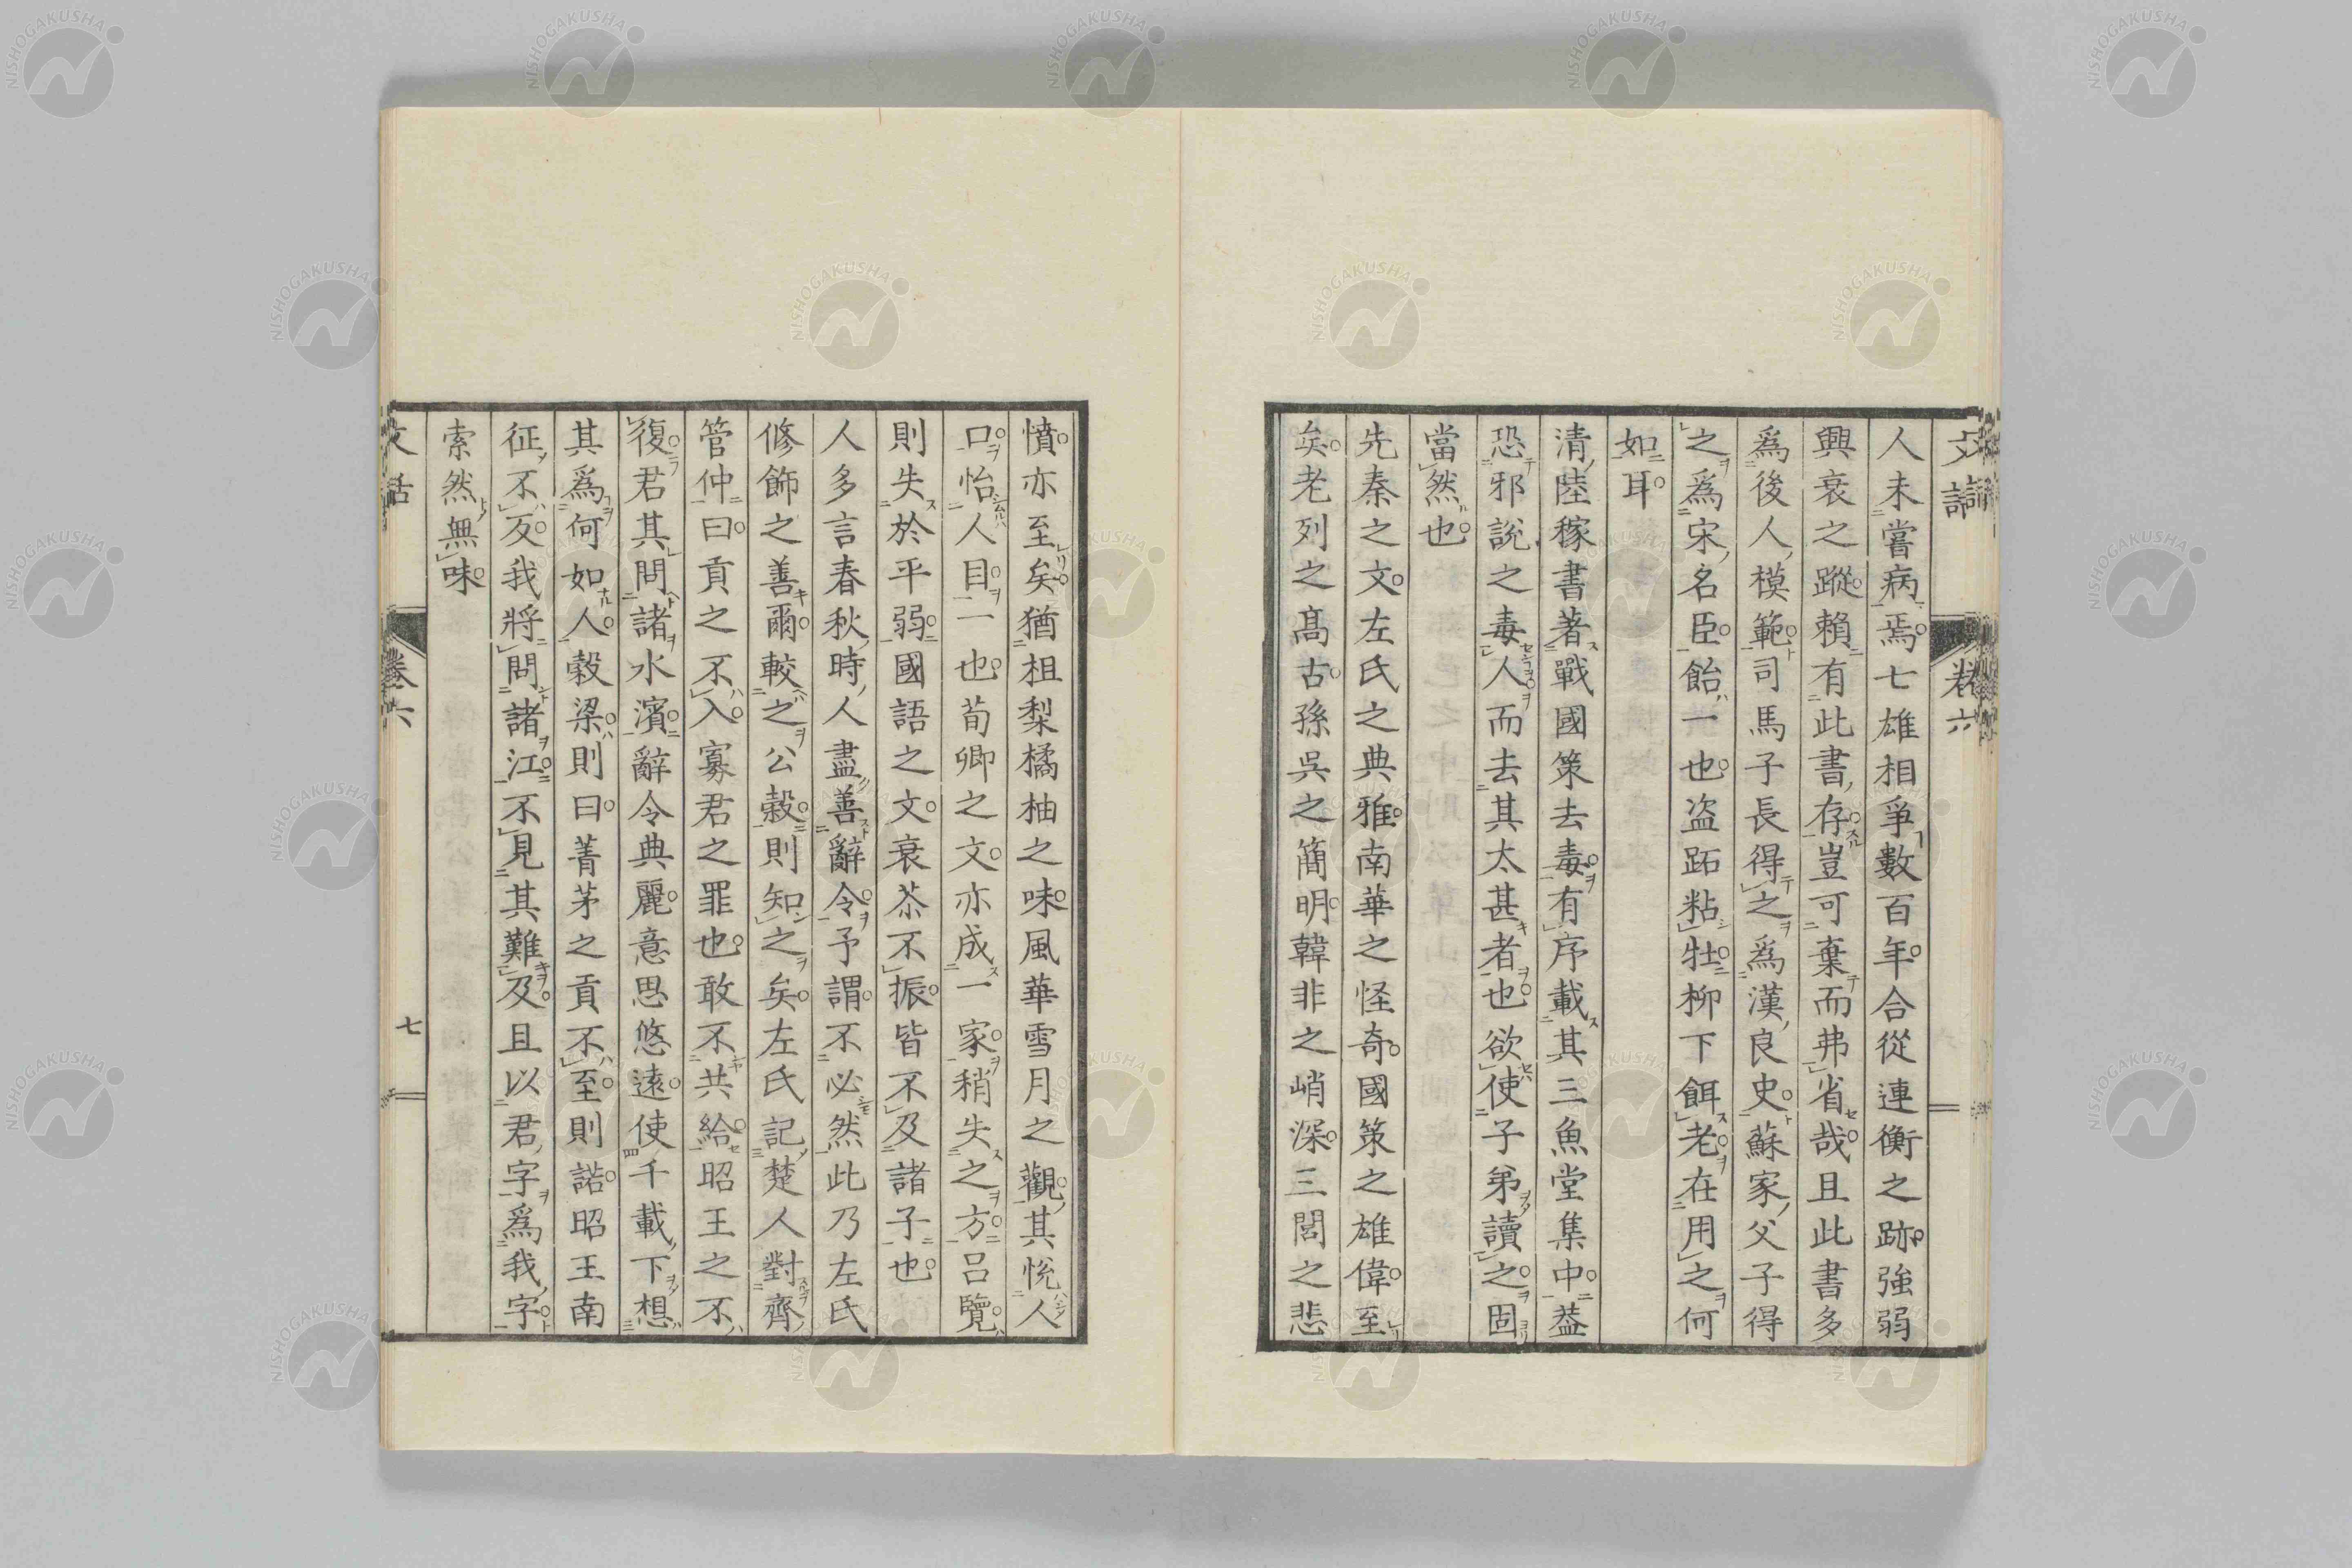 人未嘗病焉七雄相爭數百年合從連衡之跡強弱
興衰之蹤賴有此書存豈可棄而弗省哉且此書多
爲後人模範司馬子長得之爲漢良史蘇家父子得
之爲宋名臣飴一也盗跖粘牡柳下餌老在用之何
如耳
清陸稼書著戰國策去毒有序載其三魚堂集中葢
恐邪說之毒人而去其太甚者也欲使子弟讀之固
當然也
先秦之文左氏之典雅南華之怪奇國策之雄偉至
矣老列之髙古孫吳之簡明韓非之峭深三閭之悲
憤亦至矣猶柤梨橘柚之味風華雪月之觀其悅人
口怡人目一也荀卿之文亦成一家稍失之方呂覽
則失於平弱國語之文衰苶不振皆不及諸子也
人多言春秋時人盡善辭令予謂不必然此乃左氏
修飾之善爾較之公穀則知之矣左氏記楚人對齊
管仲曰貢之不入寡君之罪也敢不共給昭王之不
復君其問諸水濱辭令典麗意思悠遠使千載下想
其爲何如人穀梁則曰菁茅之貢不至則諾昭王南
征不反我將問諸江不見其難及且以君字爲我字
索然無味
文話
卷六
七
NISHOGAKUSHA